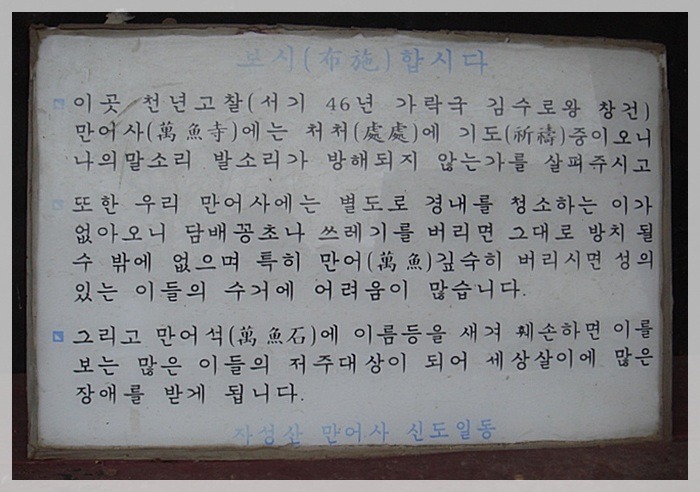 보시(布施)합시다
이곳 천년고찰(서기 46년 가락국 김수로왕 창건)
만어사(萬魚寺)에는 처처(處處)에 기도(祈禱)중이오니
나의말소리 발소리가 방해되지 않는가를 살펴주시고
또한 우리 만어사에는 별도로 경내를 청소하는 이가
없아오니 담배꽁초나 쓰레기를 버리면 그대로 방치 될
수 밖에 없으며 특히 만어(萬魚)깊숙히 버리시면 성의
있는 이들의 수거에 어려움이 많습니다.
그리고 만어석(萬魚石)에 이름등을 새겨 훼손하면 이를
보는 많은 이들의 저주대상이 되어 세상살이에 많은
장애를 받게 됩니다.
자성산 만어사 신도일동